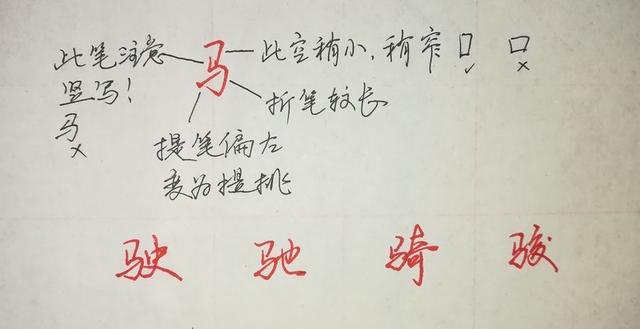 此笔注意
竖写！
马
×
马
此空稍小，稍窄
✓
×
折笔较长
提笔偏左
变为提挑
驶 驰 骑 骏